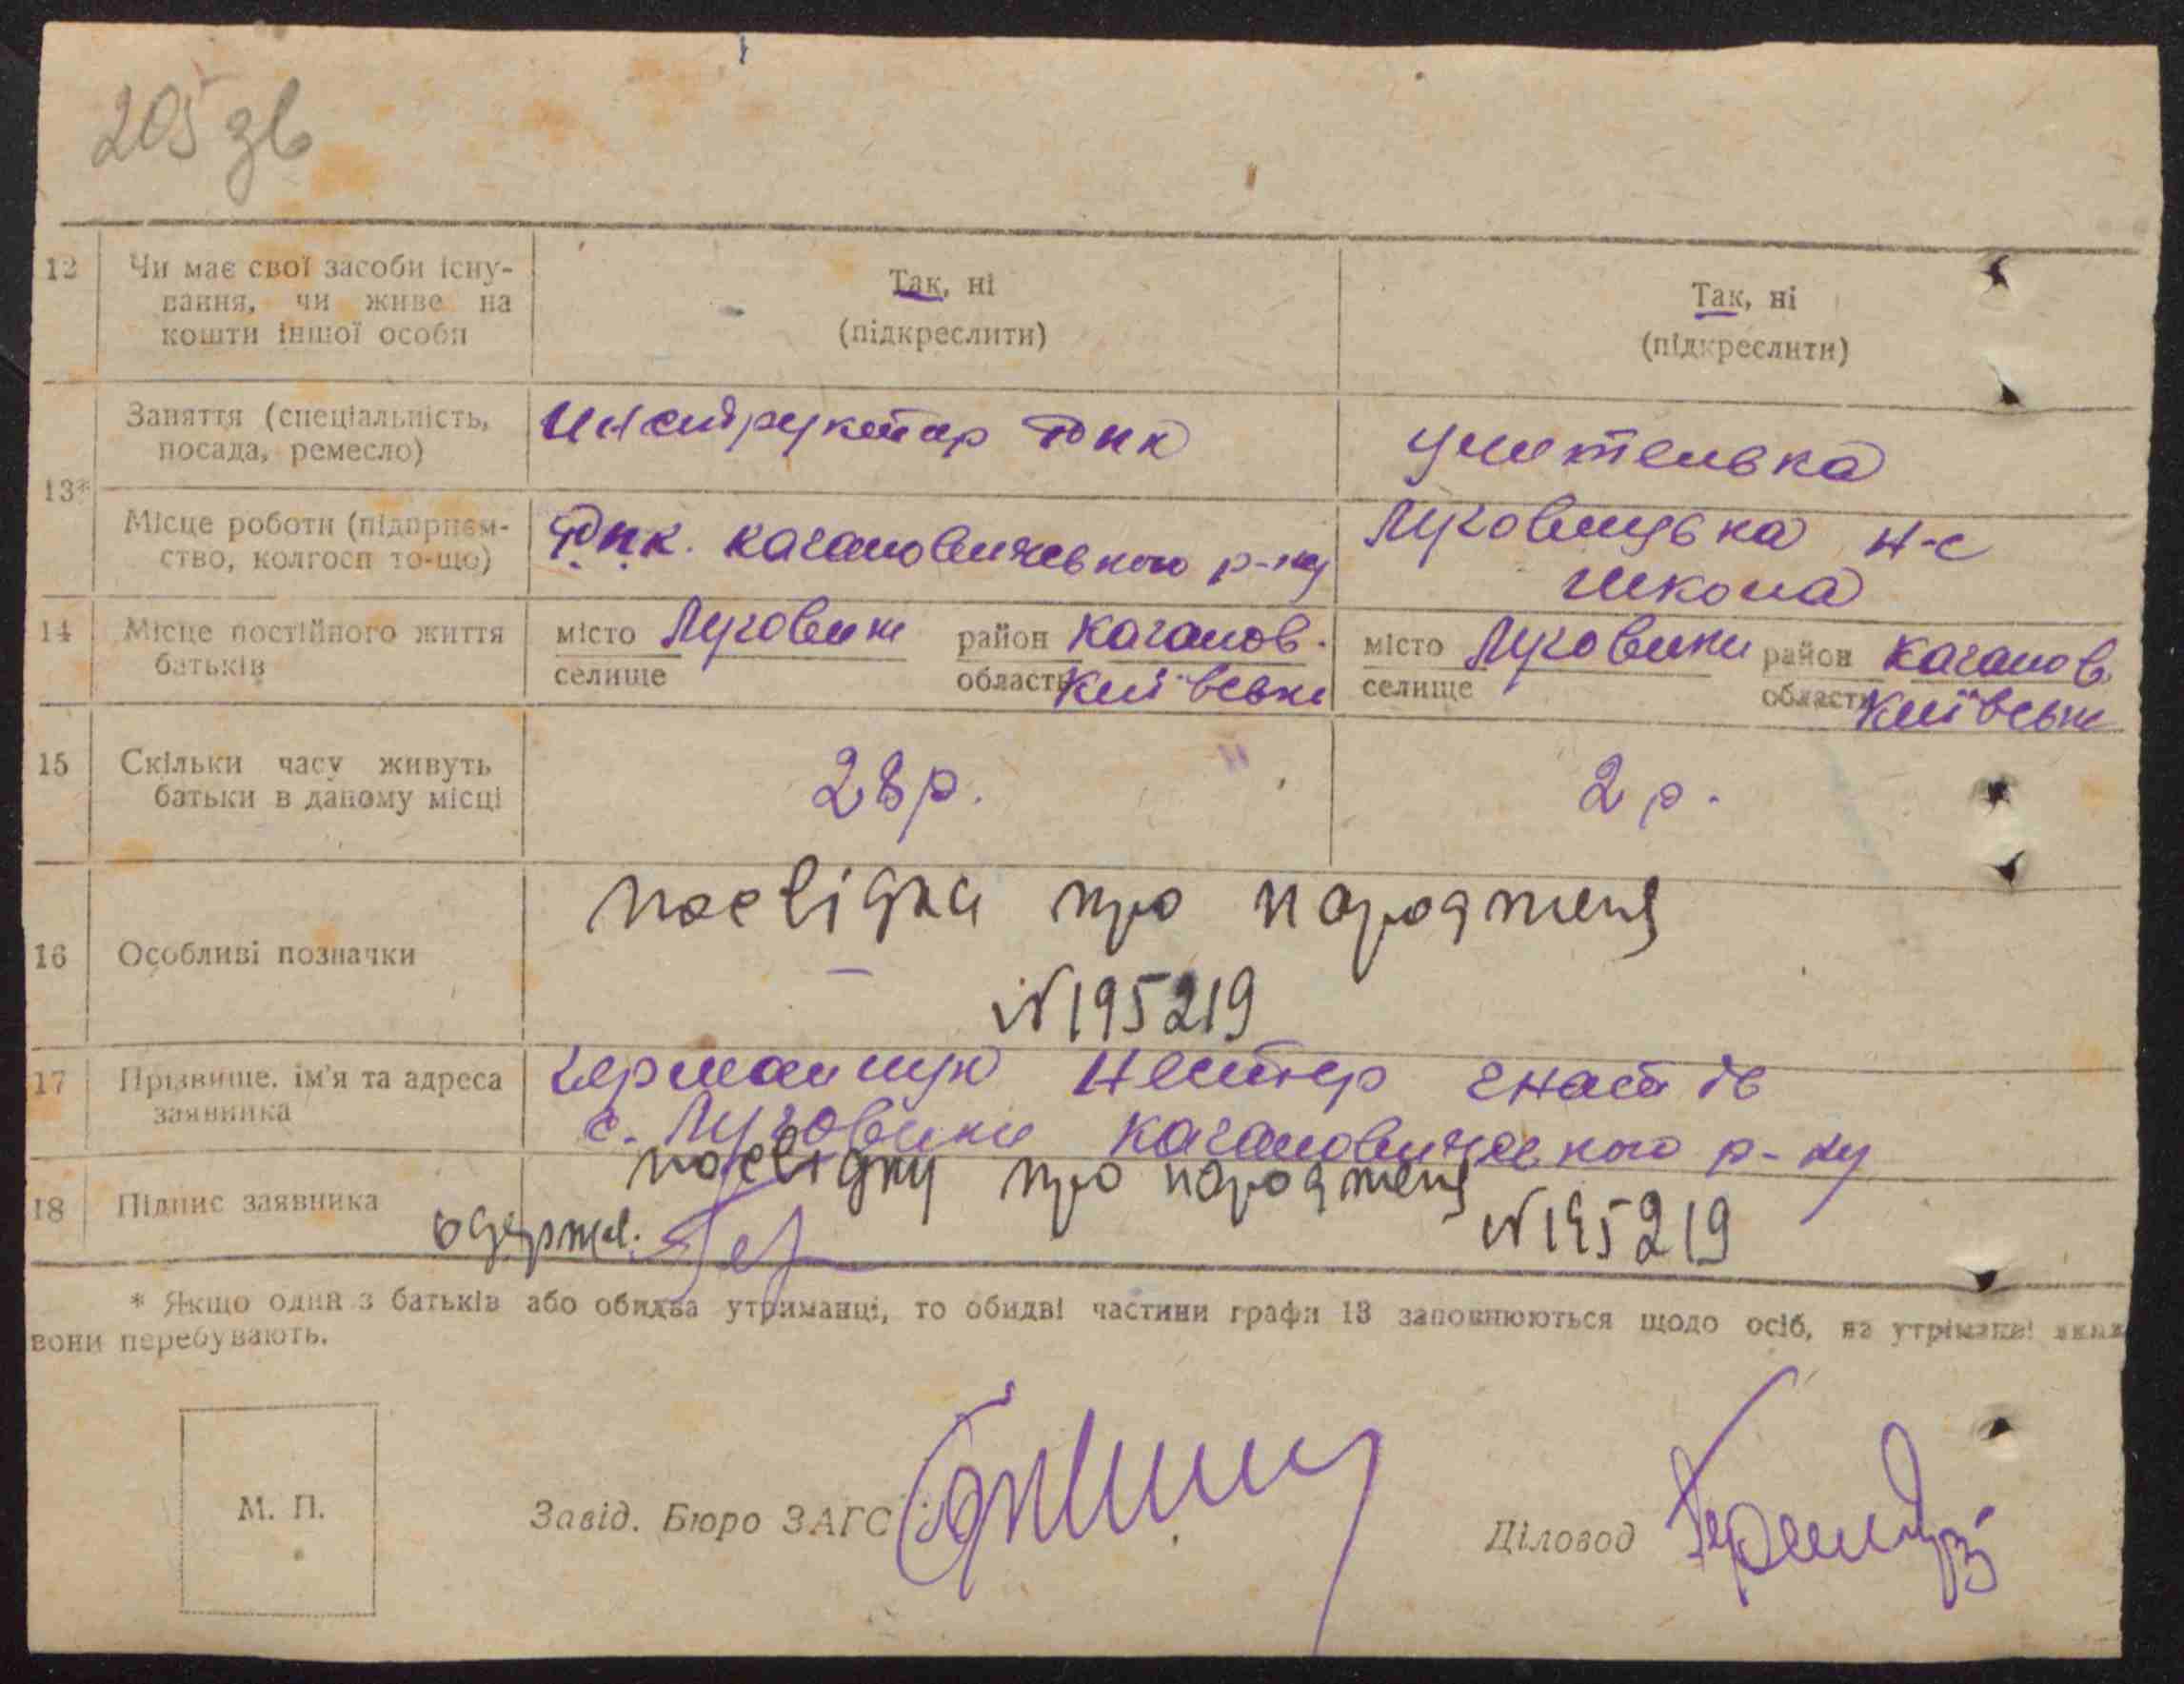 205 зв
12 Чи має свої засоби існу- Так, ні Так, ні
вання, чи живе на (підкреслити) (підкреслити)
кошти іншої особи
13* Заняття (спеціальність, Инструктор РПК учителька
посада, ремесло)
Місце роботи (підприєм- РПК. Кагановичевкого р-ну Луговицька н-с
ство, колгосп то-що) школа
14 Місце постійного життя місто Луговики район Каганов. місто Луговики район Каганов.
батьків селище область Київськ селище область Київськ
15 Скільки часу живуть 28 р. 2 р.
батьки в даному місці
16 Особливі позначки посвідка про народженя
№ 195219
17 Прізвище, ім'я та адреса Германчук Нестер Гнатів
заявника с. Луговики Кагановического р-ну
посвідку про народженя
18 Підпис заявника одержав. Гер № 195219
* Якщо один з батьків або обидва утриманці, то обидві частини графи 13 заповнюються щодо осіб, на утриманні яких
вони перебувають.
М. П. Завід. Бюро ЗАГС Діловод